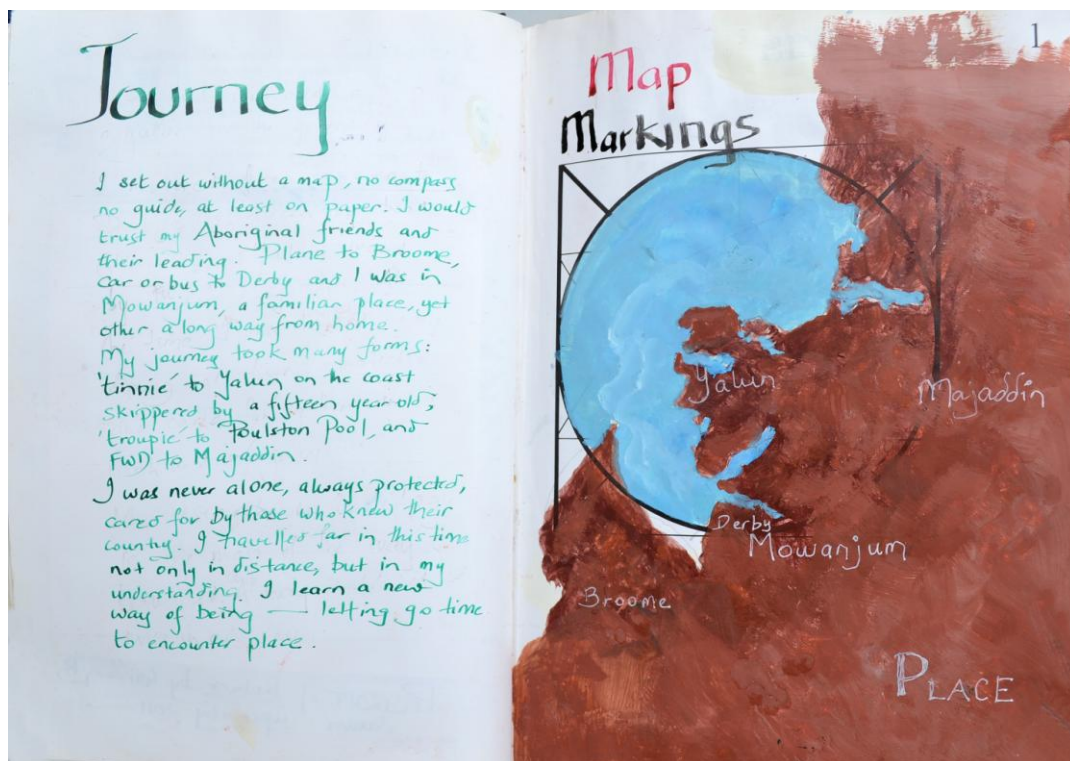 Journey
I set out without a map, no compass
no guide, at least on paper. I would
trust my Aboriginal friends and
their leading. Plane to Broome,
car or bus to Derby and I was in
Mowanjum, a familiar place, yet
other a long way from home.
My journey took many forms:
'tinnie' to Yalun on the coast
skippered by a fifteen year old,
'troupie' to Poulston Pool, and
FWD to Majaddin.
I was never alone, always protected,
cared for by those who knew their
country. I travelled far in this time
not only in distance, but in my
understanding. I learn a new
way of being — letting go time
to encounter place.
1
Map
Markings
Yalun
Majaddin
Derby
Mowanjum
Broome
PLACE